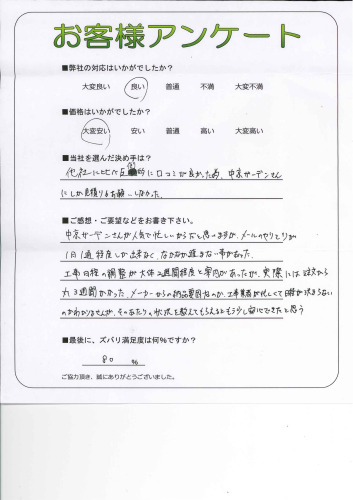 お客様アンケート
■弊社の対応はいかがでしたか?
大変良い 良い 普通 不満 大変不満
■価格はいかがでしたか?
大変安い 安い 普通 高い 大変高い
■当社を選んだ決め手は?
他社に比べ圧倒的に口コミが良かった為、中京ガーデンさん
にしか見積りをお願いしなかった。
■ご感想・ご要望などをお書き下さい。
中京ガーデンさんが人気で忙しいからだと思いますが、メールのやりとりが
1日1通程度しか出来なく、なかなか進まない事があった。
工事日程の調整が大体2週間程度と案内があったが、実際には
3週間かかった。メーカーからの納品要因なのか、工事業者が忙しくて日程が決まらない
のかわかりませんが、そのあたりの状況を教えてもらえるともう少し安心できたと思う
■最後に、ズバリ満足度は何%ですか?
80 %
ご協力頂き、誠にありがとうございました。